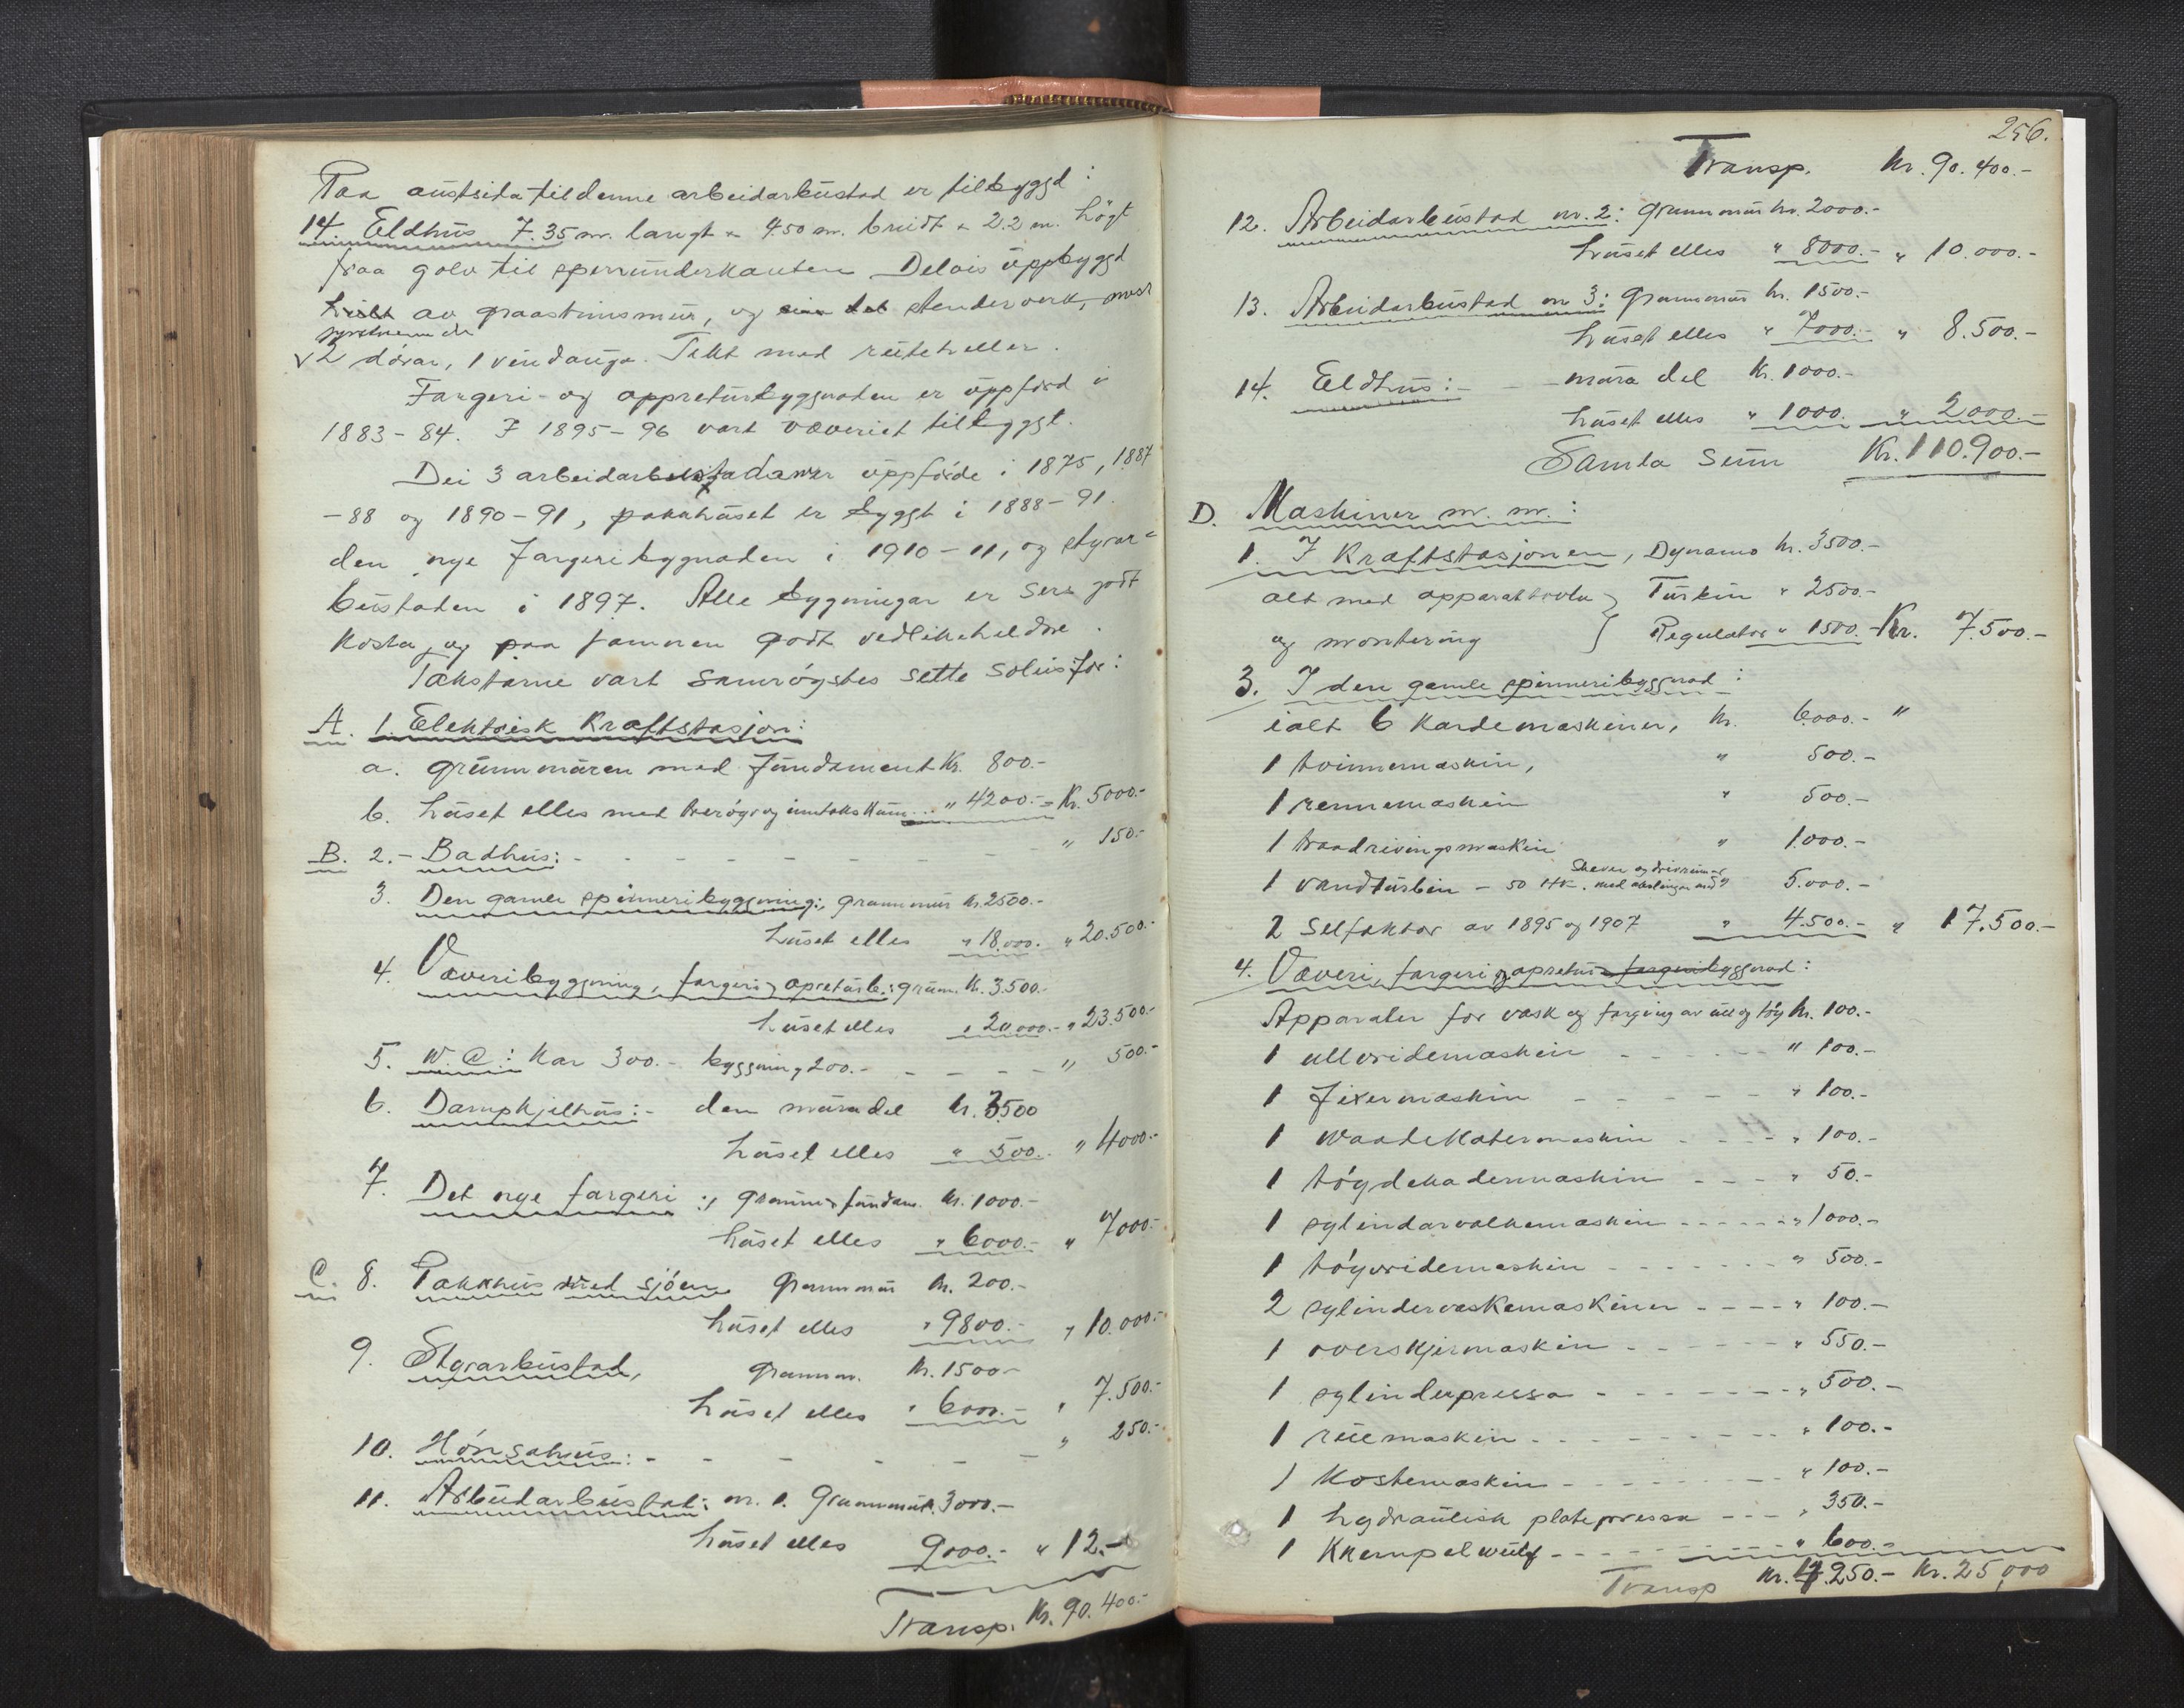 Paa austsida til denne arbeidarbustad er tilbyggd:
14. Eldhus 7.35 m. langt × 4.50 m. breidt × 2.2 m. högt
fraa golv til sperrunderkanten Delvis uppbyggd
av graasteinsmur, og stenderverk, med
2 dórar, 1 vindauga. Tekt med rutehellor.
Fargeri- og appreturbyggnaden er uppförd i
1883-84. I 1895-96 vart væveriet tilbyggt.
Dei 3 arbeidarbustadanar uppfórde i 1875, 1887
-88 og 1890-91, pakkhuset er byggt i 1888-91
den nye fargeribygnaden i 1910-11, og styrar-
bustaden i 1897. Alle bygningar er sers godt
kosta, og paa jamnen godt vedlikeheldne.
Takstarne vart samrógstes sette soleis for:
A. 1. Elektrisk Kraftstasjon:
a. grunnmuren med fundament Kr. 800.-
b. huset elles med trerógr og inntakskum... " 4200.- = Kr. 5000.-
B. 2.- Badhus: - - - - - - - " 150.-
3. Den gamle spinneribyggning: grunnmur kr. 2500.-
huset elles " 18.000.- " 20.500.-
4. Væveribyggning, fargeri og apreturb.: grunm. Kr. 3.500.-
huset elles " 20.000.- " 23.500.-
5. W.C.: Kar 300.- byggning 200.- - - - - " 500.-
6. Dampkjelhus:- den mura del kr. 3500
huset elles " 500.- " 4000.-
7. Det nye fargeri: grunnm. fundam. kr. 1000.-
huset elles " 6000.- " 7000.-
C. 8. Pakkhus med sjóen grunnmur kr. 200.-
huset elles " 9800.- " 10.000.-
9. Styrarbustad, grunnm. kr. 1500.-
huset elles " 6000.- " 7.500.-
10. Hónsahus: - - - - - - " 250.-
11. Arbeidarbustad: nr. 1. Grunnmur. 3000.-
huset elles 9000.- " 12.-
Transp. Kr. 90.400.-
256.
Transp. Kr. 90.400.-
12. Arbeidarbustad nr. 2: grunnmur kr. 2000.-
huset elles " 8000.- " 10.000.-
13. Arbeidarbustad nr 3: grunnmur kr. 1500.-
huset elles " 7000.- " 8.500.-
14. Eldhus:- - mura del Kr. 1000.-
huset elles " 1000. " 2000.-
Samla sum Kr. 110.900.-
D. Maskiner m. m.:
1. I Kraftstasjonen, Dynamo kr. 3500.-
alt med apparattavla } Turbin " 2500.-
og montering } Regulator " 1500.- Kr. 7.500.-
3. I den gamle spinneribyggnad:
ialt 6 Kardemaskiner, kr. 6000.- "
1 tvinnemaskin, " 500.-
1 rennemaskin " 500.-
1 traadrivingsmaskin " 1.000.-
1 vandturbin - 50 HK. med " 5.000.-
2 Selfaktor av 1895 og 1907 " 4.500.- " 17.500.-
4. Væveri, fargeri og apretur fargeribyggnad:
Apparater for vask og farging av ull og tóy kr. 100.-
1 ullvridemaskin - - - - - " 100.-
1 fixermaskin - - - - - " 100.-
1 waadekatermaskin - - - - " 100.-
1 tóydekadermaskin - - - " 50.-
1 sylindarvalkemaskin - - - - - - " 1000.-
1 tóyvridemaskin - - - - - - - " 500.-
2 sylindervaskemaskiner - - - - " 100.-
1 overskjermaskin - - - - - - " 550.-
1 sylinderpressa - - - - - - - " 500.-
1 ruemaskin - - - - - - - - " 100.-
1 Kostemaskin - - - - - - - " 100.-
1 hydraulisk platepressa - - - " 350.-
1 Krempelwulf - - - - - - - " 600.-
Transp Kr. 4.250.- Kr. 25,000